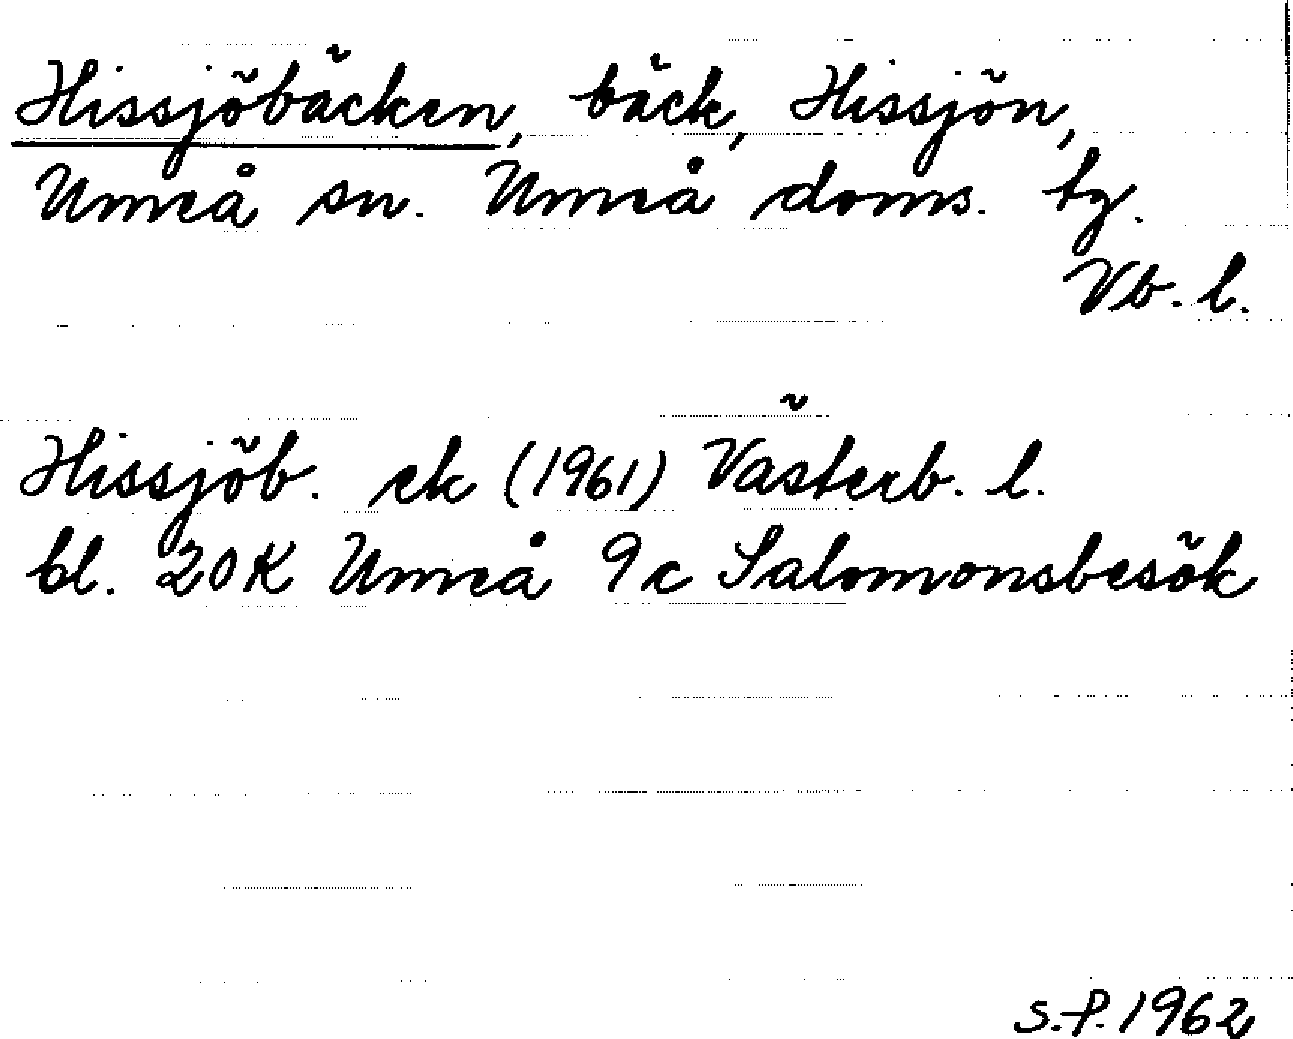 Hissjöbäcken, bäck, Hissjön,
Umeå sn. Umeå doms. tg.
Vb. l.
Hissjöb. ek (1961) Västerb. l.
bl. 20K Umeå 9c Salomonsbesök
S.P. 1962